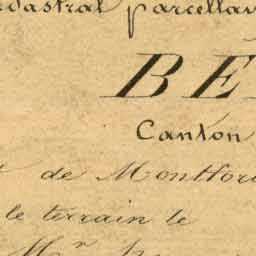 cadastral parcellai
BE
Canton
de Montfort
le terrain le
Mr